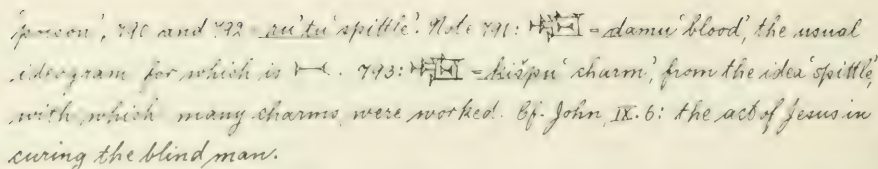 'poison', 790 and 792 = ru'tu 'spittle'. Note 791: = damu 'blood', the usual
ideogram for which is 𒁁. 793: = kišpu 'charm', from the idea 'spittle',
with which many charms were worked. Cf. John, IX. 6: the act of Jesus in
curing the blind man.